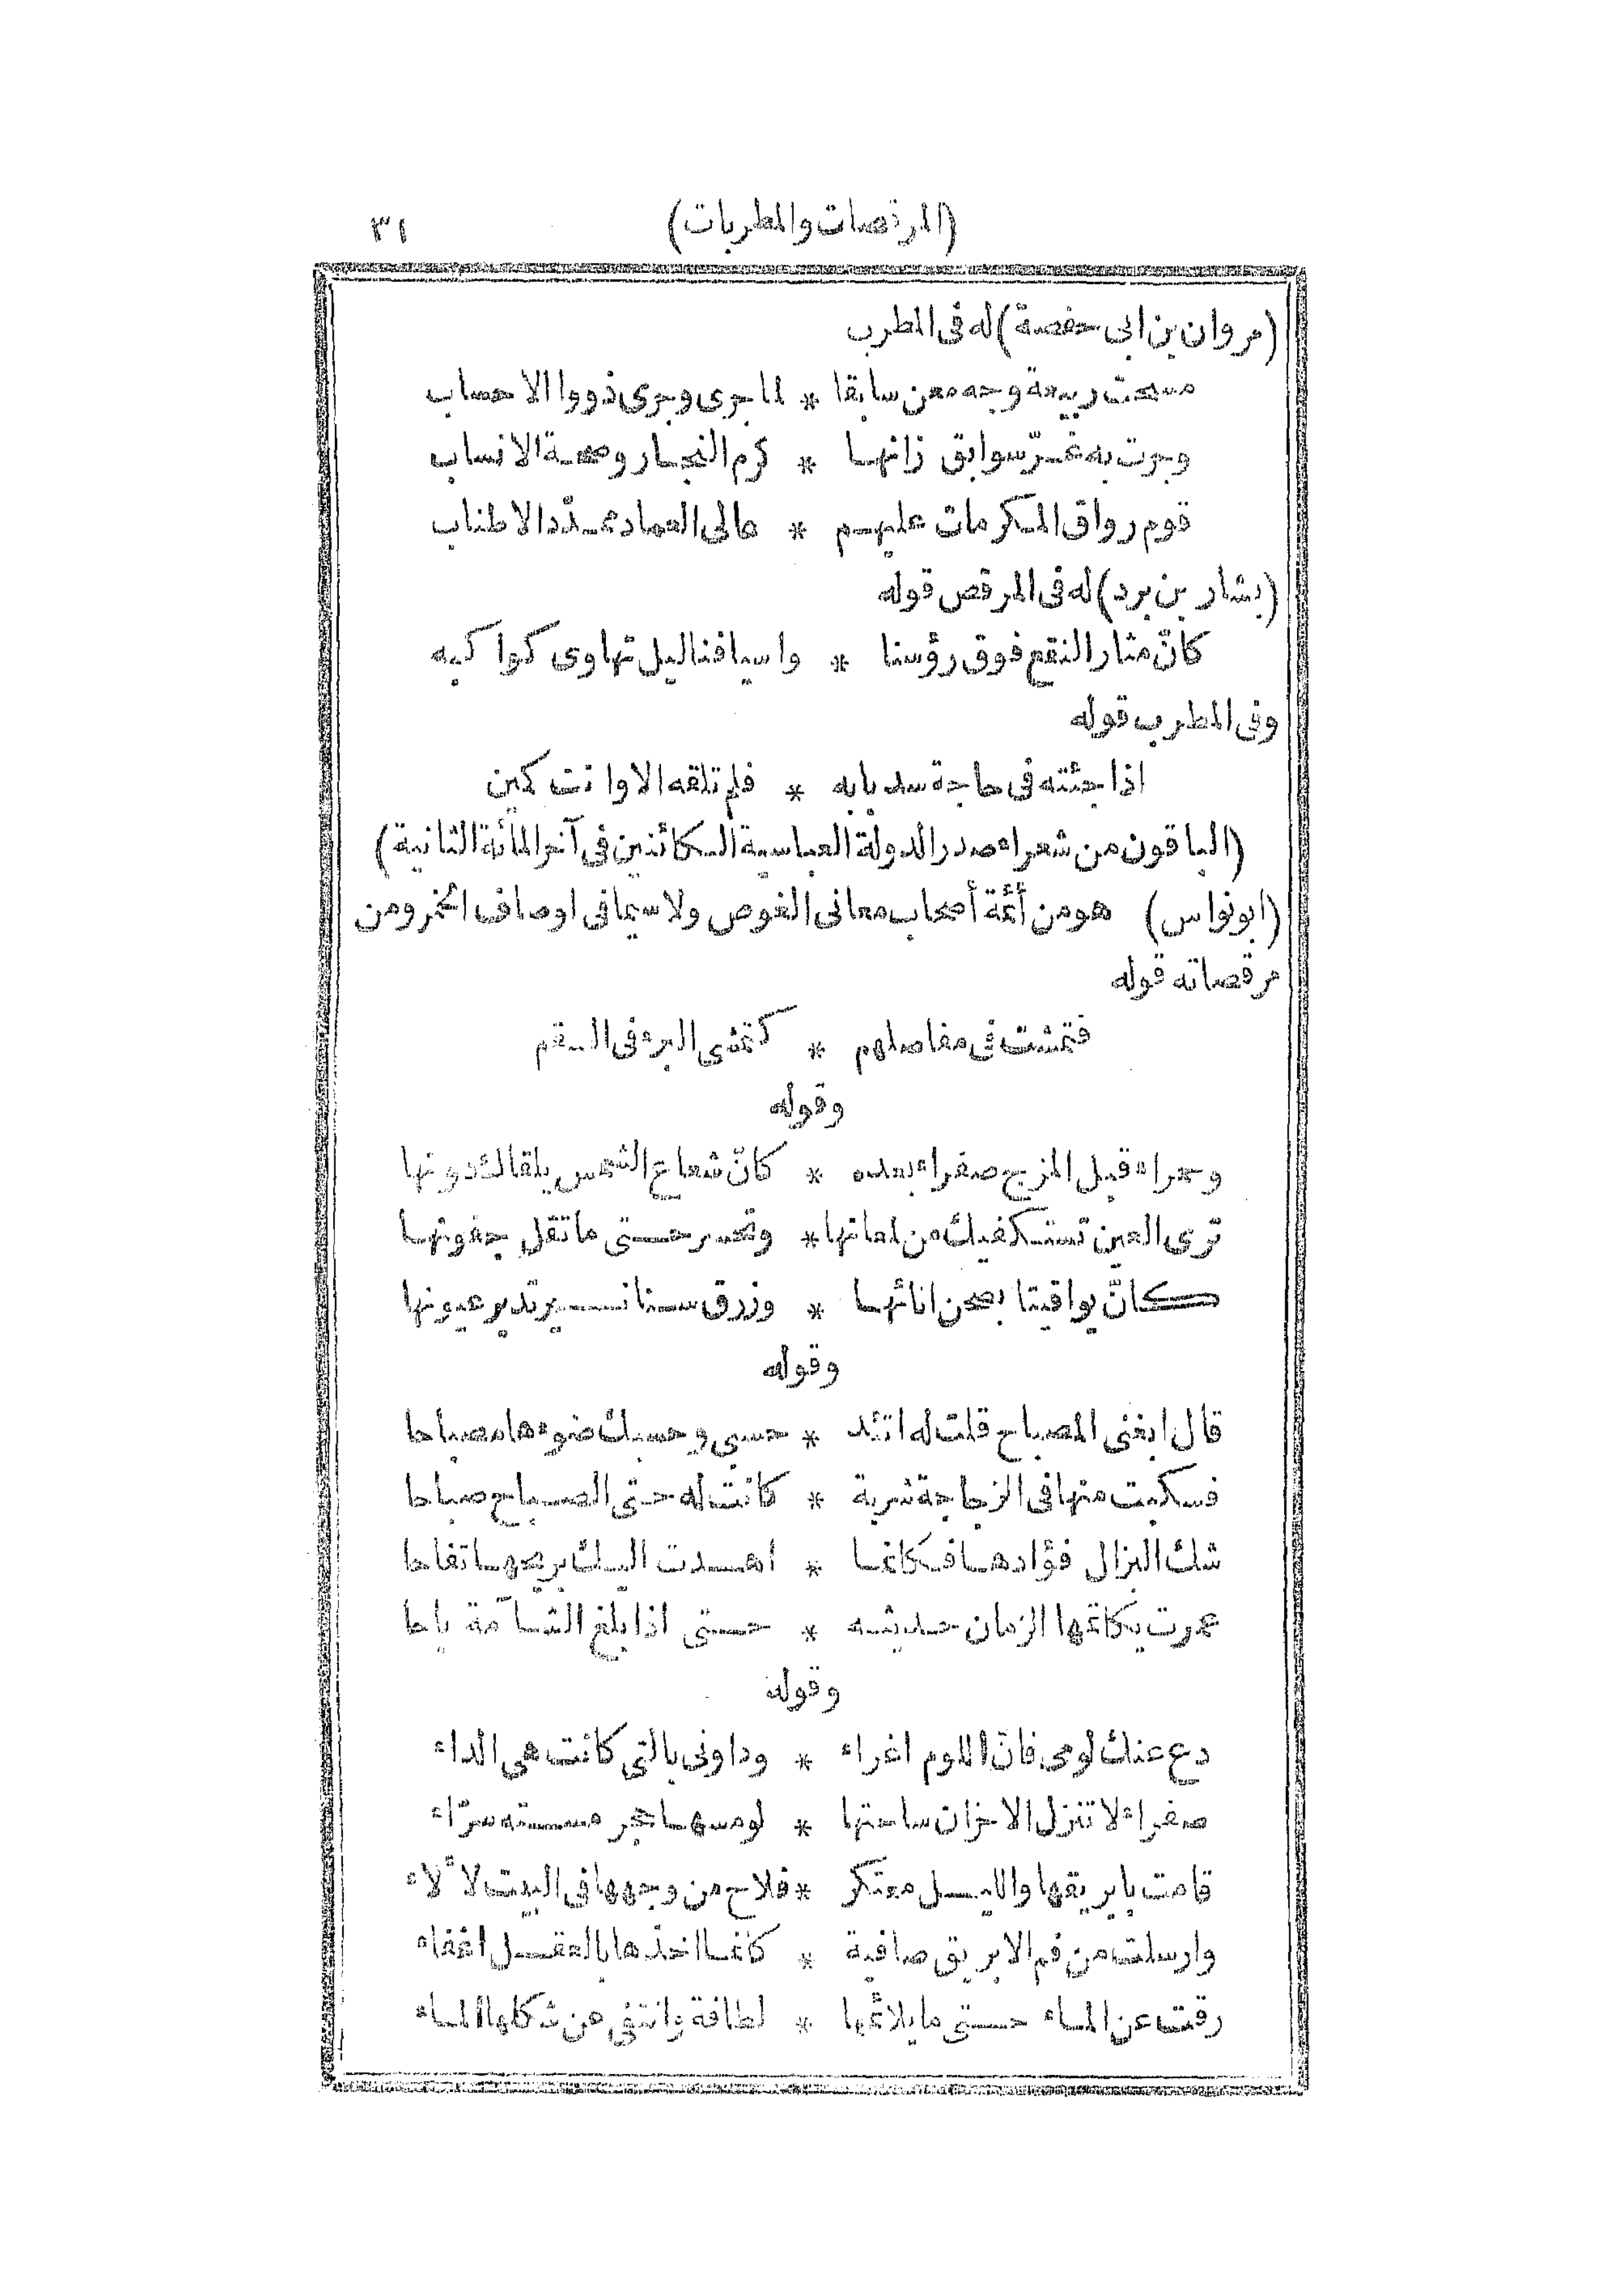 (المرقصات والمطربات) ٣١
(مروان بن ابى حفصة) له فى المطرب
مسحت ربيعة وجه معن سابقا * لما جرى وجرى ذووا الاحساب
وجرت به غرّ سوابق زانها * كرم النجار وصحة الانساب
قوم رواق المكرمات عليهم * عالى العماد ممدّد الاطناب
(بشار بن برد) له فى المرقص قوله
كانّ مثار النقع فوق رؤسنا * واسيافنا ليل تهاوى كواكبه
وفى المطرب قوله
اذا جئته فى حاجة سد بابه * فلم تلقه الا وانت كمين
(الباقون من شعراء صدر الدولة العباسية الكائنين فى آخر المائة الثانية)
(ابونواس) هو من أئمة أصحاب معانى الغوص ولا سيما فى اوصاف الخمر ومن
مرقصاته قوله
فتمشت فى مفاصلهم * كتمشى البرء فى السقم
وقوله
وحمراء قبل المزج صفراء بعده * كانّ شعاع الشمس يلقاك دونها
ترى العين تستعفيك من لمعانها * وتحسر حتى ما تقل جفونها
كانّ يواقيتا بصحن انائها * وزرق سنانير تدير عيونها
وقوله
قال ابغنى المصباح قلت له اتئد * حسبى وحسبك ضوءها مصباحا
فسكبت منها فى الزجاجة شربة * كانت له حتى الصباح صباحا
شك البزال فؤادها فكانما * اهدت اليك بريحها تفاحا
عمرت يكاتمها الزمان حديثه * حتى اذا بلغ السآمة باحا
وقوله
دع عنك لومى فانّ اللوم اغراء * وداونى بالتى كانت هى الداء
صفراء لا تنزل الاحزان ساحتها * لو مسها حجر مسته سرّاء
قامت بابريقها والليل معتكر * فلاح من وجهها فى البيت لألاء
وارسلت من فم الابريق صافية * كانما اخذها بالعقل اغفاء
رقت عن الماء حتى ما يلائمها * لطافة وانتفى عن شكلها الماء